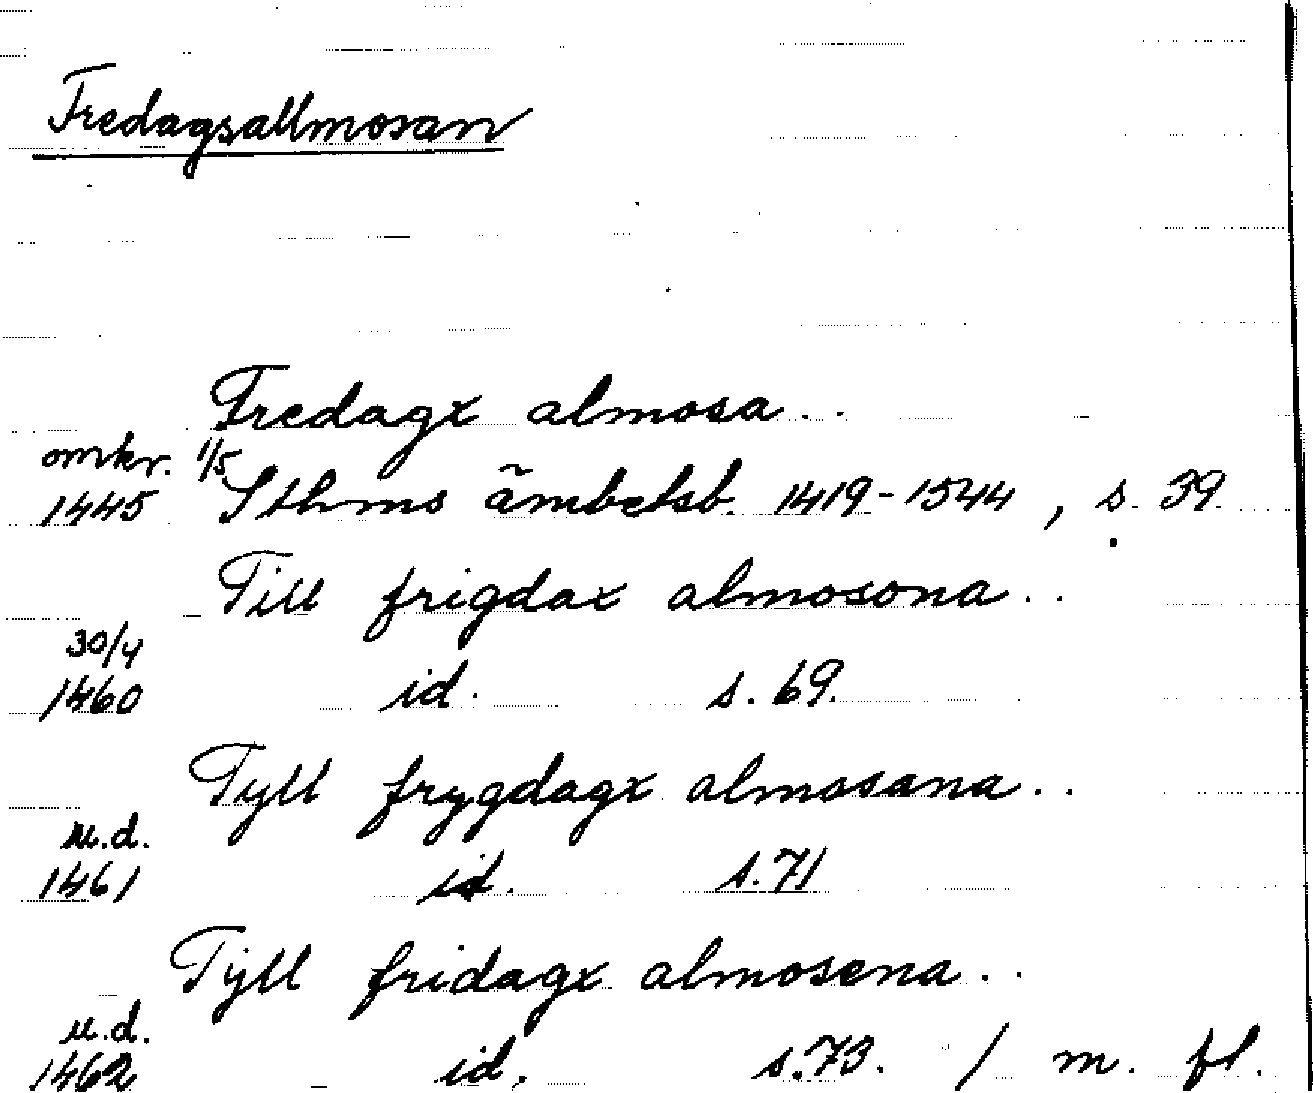 Fredagsallmosan
Fredagx almosa . .
omkr. 1/5
1445 Sthms ämbetsb. 1419-1544, s. 39.
Till frigdax almosona . .
30/4
1460 id. s. 69.
Tyll frygdagx almosana . .
u.d.
1461 id. s. 71
Tÿll fridagx almosena . .
u.d.
1462 id. s. 73. / m. fl.